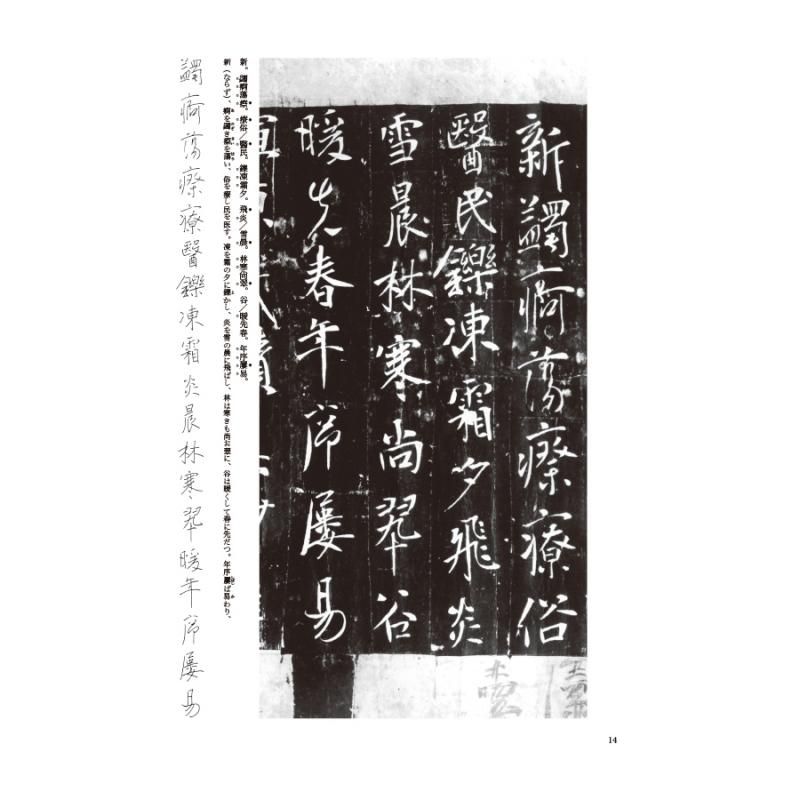 新蠲痾蕩瘵療俗
醫民鑠凍霜夕飛炎
雪晨林寒尚翠谷
暖先春年序屢易
新。蠲痾蕩瘵。療俗/醫民。鑠凍霜夕。飛炎/雪晨。林寒尚翠。谷/暖先春。年序屢易。
新(ならず)、痾を蠲き瘵を蕩い、俗を療し民を医す。凍を霜の夕に鑠かし、炎を雪の晨に飛ばし、林は寒きも尚お翠に、谷は暖くして春に先だつ。年序屢ば易わり、
蠲痾蕩瘵療醫鑠凍霜炎晨林寒翠暖年序屢易
14